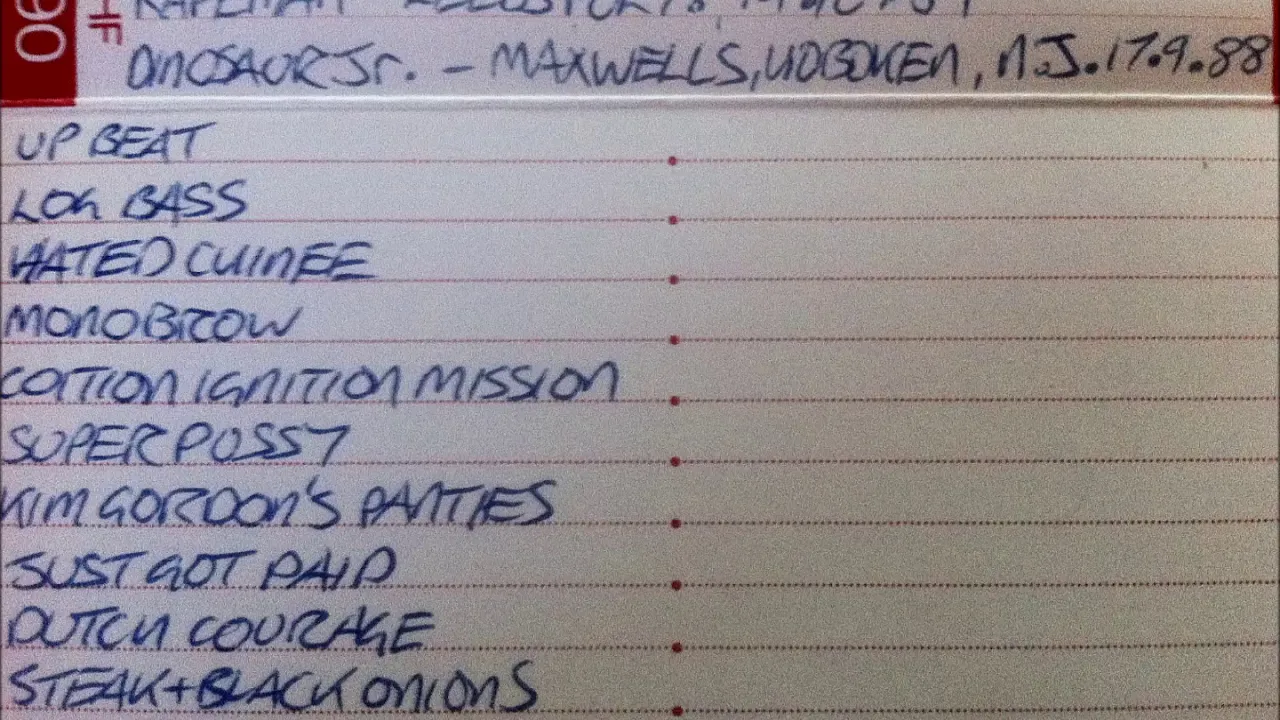 90
HF
RAPEMAN
DINOSAUR Jr. – MAXWELLS, HOBOKEN, N.J. 17.9.88
UP BEAT
LOG BASS
HATED CHINEE
MONOBROW
COITION IGNITION MISSION
SUPERPUSSY
KIM GORDON'S PANTIES
JUST GOT PAID
DUTCH COURAGE
STEAK + BLACK ONIONS